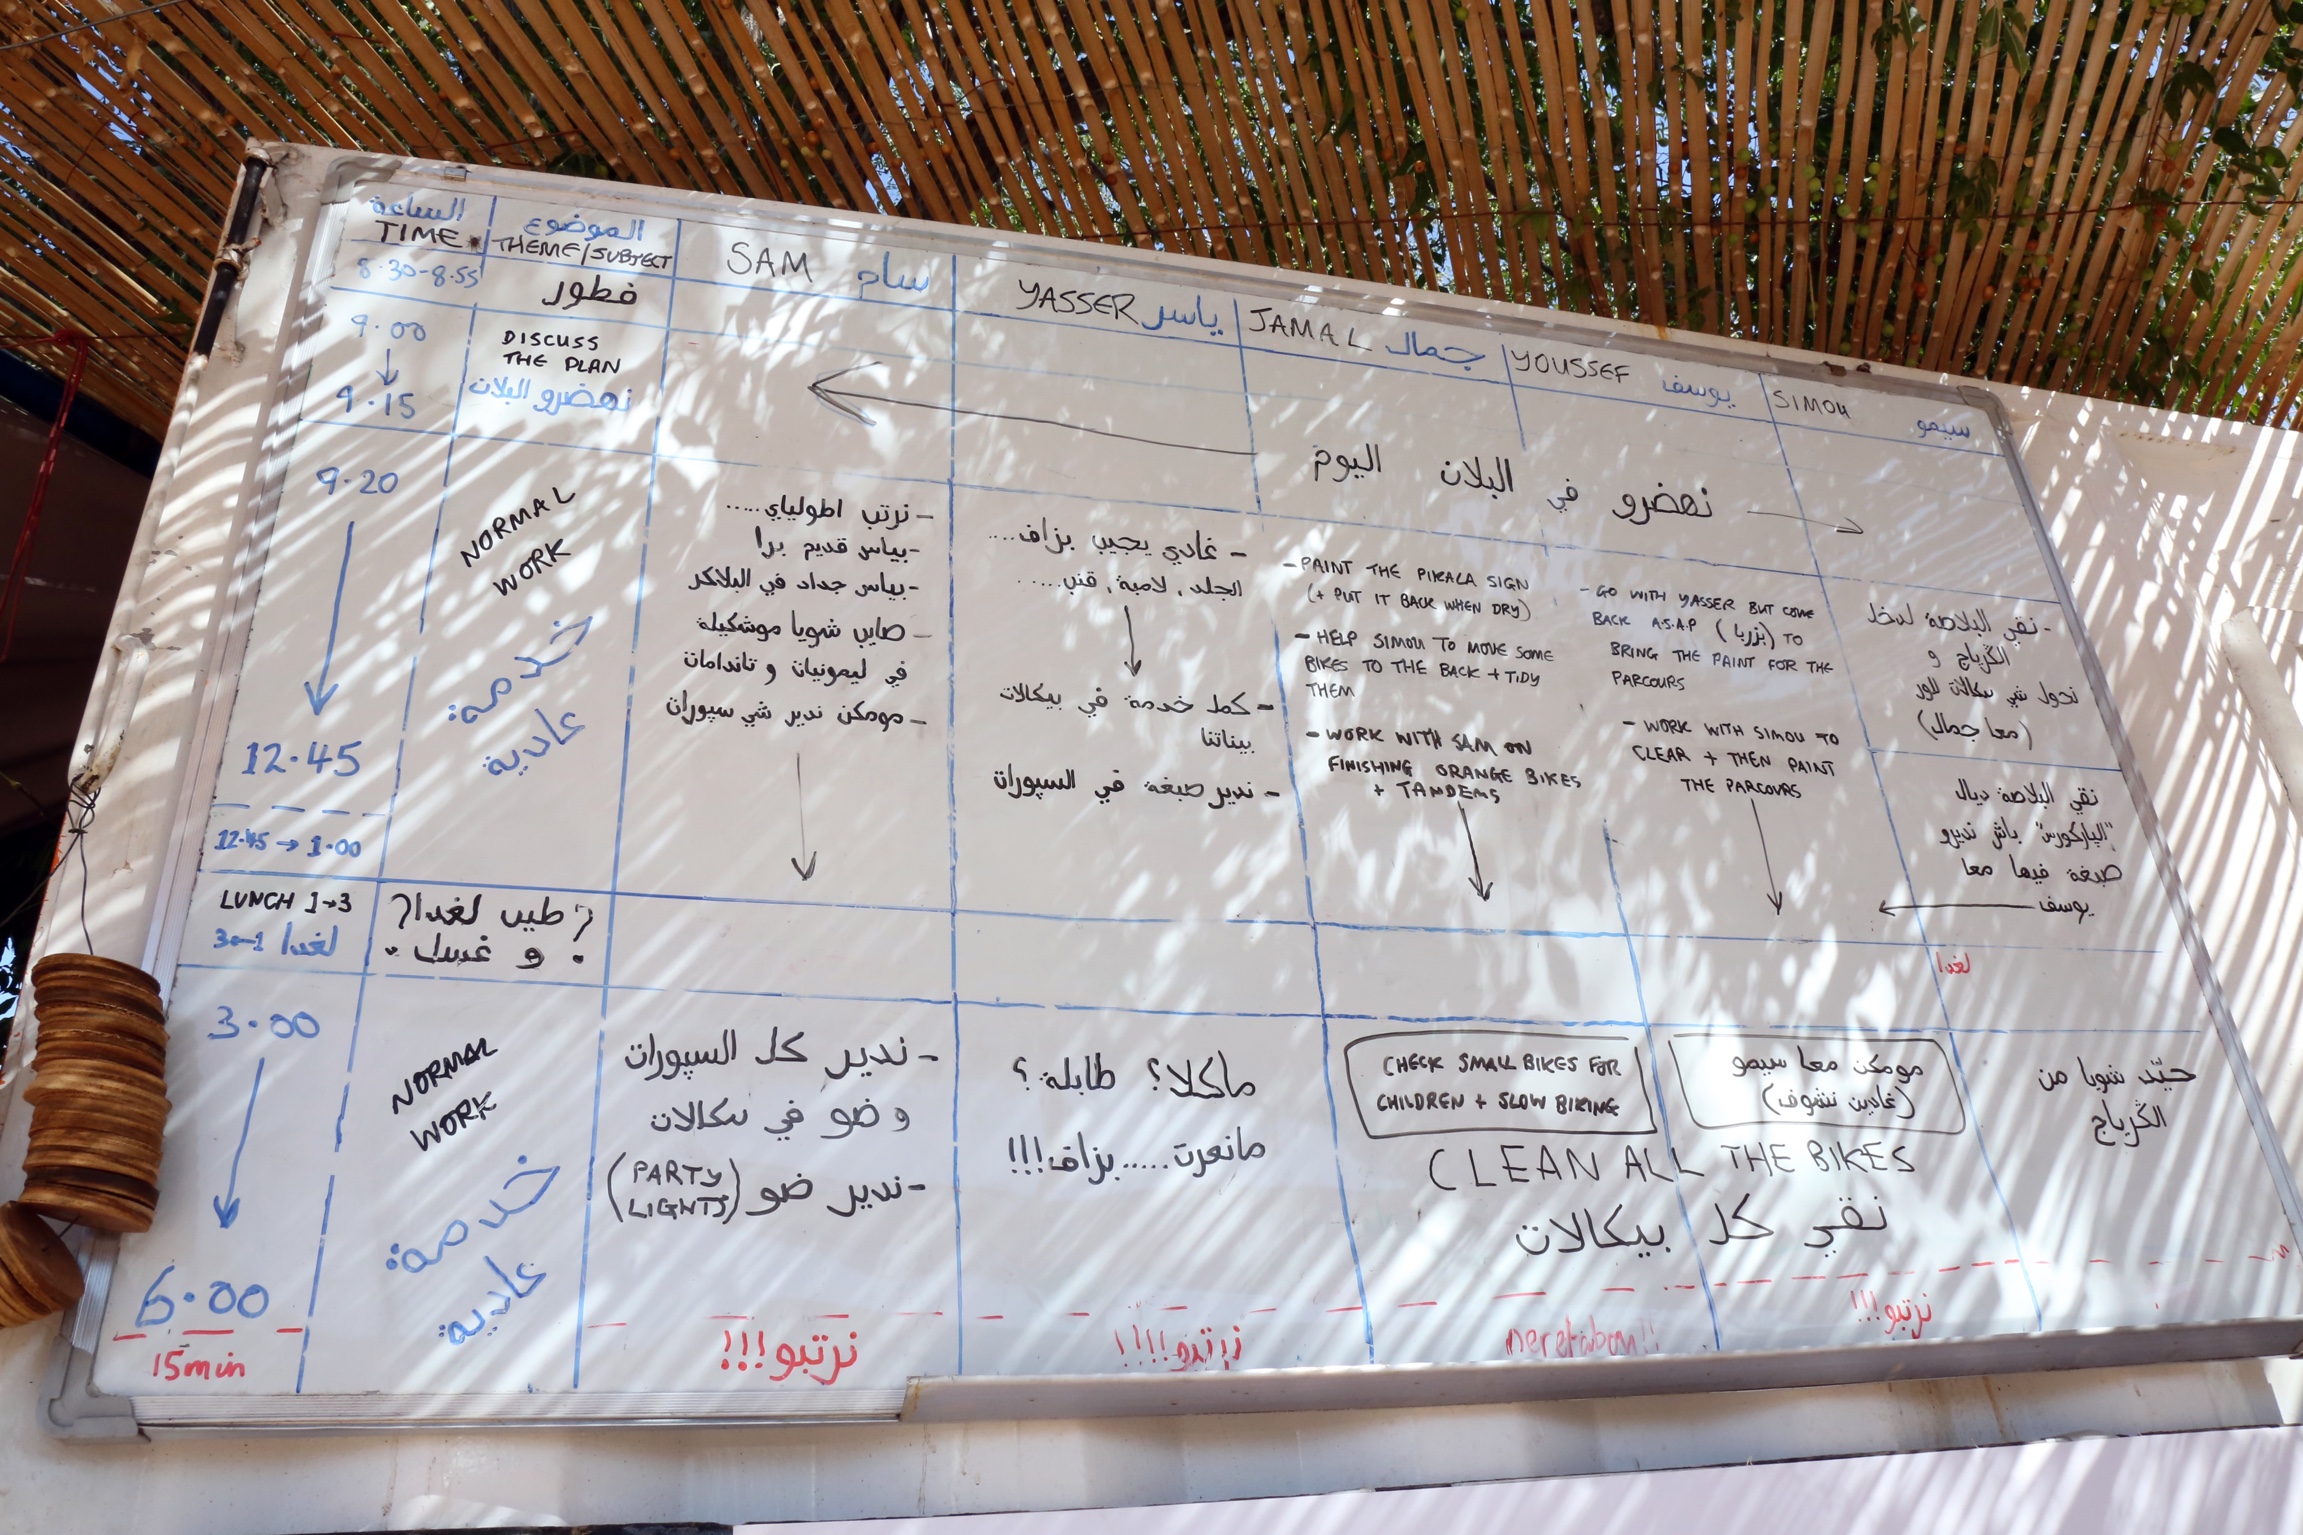 الساعة
TIME
الموضوع
THEME/SUBJECT
SAM سام
YASSER ياسر
JAMAL جمال
YOUSSEF يوسف
SIMOH سيمو
8.30-8.55
فطور
9.00
9.15
DISCUSS
THE PLAN
نهضرو البلان
نهضرو في البلان اليوم
9.20
12.45
12.45 → 1.00
NORMAL
WORK
خدمة
عادية
- نرتب اطولياي.....
- بياس قديم برا
- بياس جداد في البلاكر
- صايب شويا موشكيلة
في ليمونيان و تاندامات
- مومكن ندير شي سپوران
- غادي يجيب بزاف....
الجلد، لامبة، قنب.....
- كمل خدمة في بيكالات
بيناتنا
- ندير صبغة في السپوران
- PAINT THE PIKALA SIGN
(+ PUT IT BACK WHEN DRY)
- HELP SIMOU TO MOVE SOME
BIKES TO THE BACK + TIDY
THEM
- WORK WITH SAM ON
FINISHING ORANGE BIKES
+ TANDEMS
- GO WITH YASSER BUT COME
BACK A.S.A.P (بزربا) TO
BRING THE PAINT FOR THE
PARCOURS
- WORK WITH SIMOU TO
CLEAR + THEN PAINT
THE PARCOURS
- نقي البلاصة لدخل
الگرباج و
نحول شي بيكالات للور
(معا جمال)
نقي البلاصة ديال
"الپاركورس" باش نديرو
صبغة فيها معا
يوسف
LUNCH 1→3
لغدا 1→3
؟ طيب لغدا؟
و غسل
لغدا
3.00
6.00
NORMAL
WORK
خدمة
عادية
- ندير كل السپوران
و ضو في بيكالات
- ندير ضو (PARTY
LIGHTS)
ماكلا؟ طابلة؟
مانعرت.....بزاف!!!
CHECK SMALL BIKES FOR
CHILDREN + SLOW BIKING
مومكن معا سيمو
(غادين نشوف)
CLEAN ALL THE BIKES
نقي كل بيكالات
حيّد شويا من
الگرباج
15min
نرتبو!!!
نرتبو!!!!
neretaboh!!
نرتبو!!!